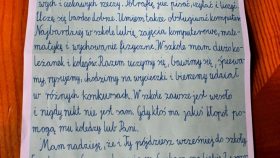 wych i ciekawych rzeczy. Potrafię już pisać, czytać i liczyć.
Uczę się bardzo dobrze. Umiem także obsługiwać komputer.
Najbardziej w szkole lubię zajęcia komputerowe, mate-
matykę i wychowanie fizyczne. W szkole mam dużo ko-
leżanek i kolegów. Razem uczymy się, bawimy się, śpiewa-
my, rysujemy, chodzimy na wycieczki i bierzemy udział
w różnych konkursach. W szkole zawsze jest wesoło
i nigdy nikt nie jest sam. Gdy ktoś ma jakiś kłopot po-
mogą mu koledzy lub Pani.
Mam nadzieję, że i Ty pójdziesz wcześniej do szkoły